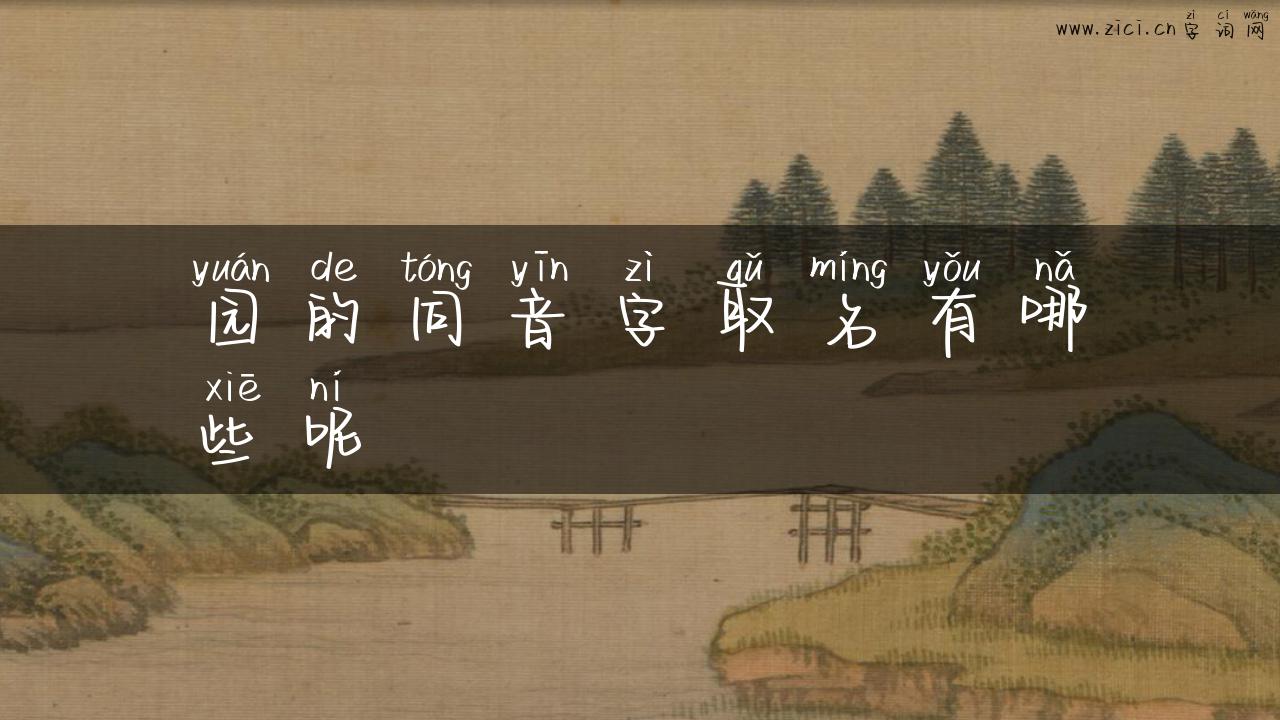 zì cí wǎng
www.zici.cn 字词网
yuán de tóng yīn zì qǔ míng yǒu nǎ
园的同音字取名有哪
xiē ní
些呢